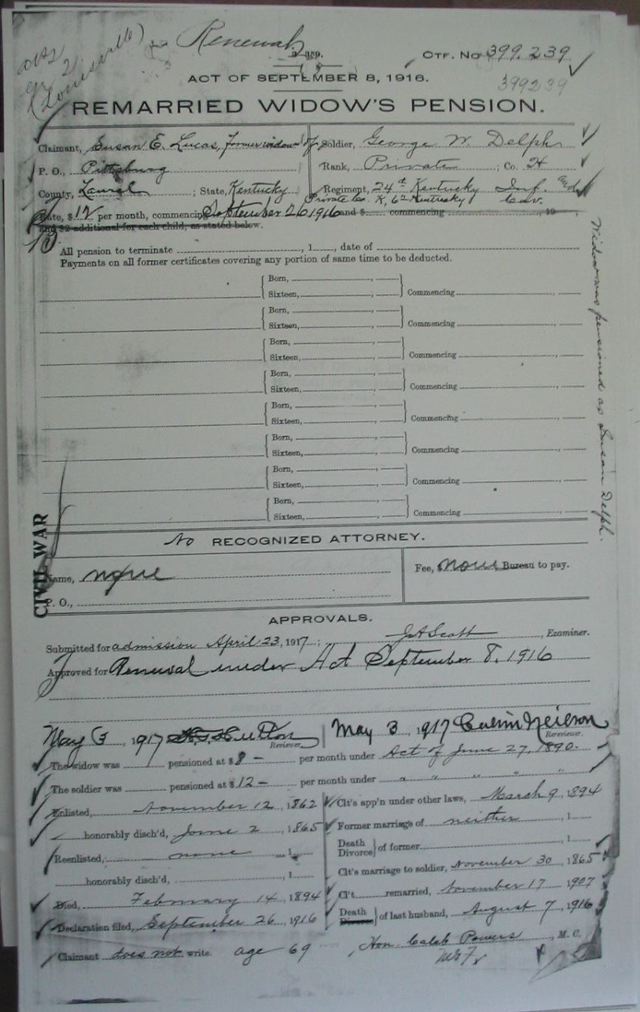 Renewal
3-389.
Ctf. No. 399.239
399239
(Louisville)
ACT OF SEPTEMBER 8, 1916.
REMARRIED WIDOW'S PENSION.
Claimant, Susan E. Lucas, former widow of Soldier, George W. Delph
P. O., Pittsburg Rank, Private; Co. H
County, Laurel; State, Kentucky Regiment, 24th Kentucky Inf. and
Private Co. K, 6th Kentucky Cav.
Rate, $12 per month, commencing September 26 1916 and $ commencing , 19
and $2 additional for each child, as stated below.
All pension to terminate , 1 , date of
Payments on all former certificates covering any portion of same time to be deducted.
Born, , 
Sixteen, , Commencing ,
Born, , 
Sixteen, , Commencing ,
Born, , 
Sixteen, , Commencing ,
Born, , 
Sixteen, , Commencing ,
Born, , 
Sixteen, , Commencing ,
Born, , 
Sixteen, , Commencing ,
Born, , 
Sixteen, , Commencing ,
Born, , 
Sixteen, , Commencing ,
Widow was pensioned as Susan Delph.
CIVIL WAR
No RECOGNIZED ATTORNEY.
Name, none Fee, $ none Bureau to pay.
P. O.,
APPROVALS.
Submitted for admission April 23, 1917; J A Scott, Examiner.
Approved for Renewal under Act September 8, 1916
May 3, 1917 Reviewer. May 3, 1917 Calvin Neilson Reviewer.
The widow was pensioned at $8- per month under Act of June 27, 1890.
The soldier was pensioned at $12- per month under " " " " "
Enlisted, November 12, 1862 Clt's app'n under other laws, March 9, 1894
honorably disch'd, June 2, 1865 Former marriage of neither , 1
Reenlisted, none , 1 Death Divorce } of former , 1
honorably disch'd, , 1 Clt's marriage to soldier, November 30, 1865
Died, February 14, 1894 Cl't remarried, November 17, 1907
Declaration filed, September 26, 1916 Death Divorce } of last husband, August 7, 1916
Claimant does not write. age 69 Hon. Caleb Powers, M. C.